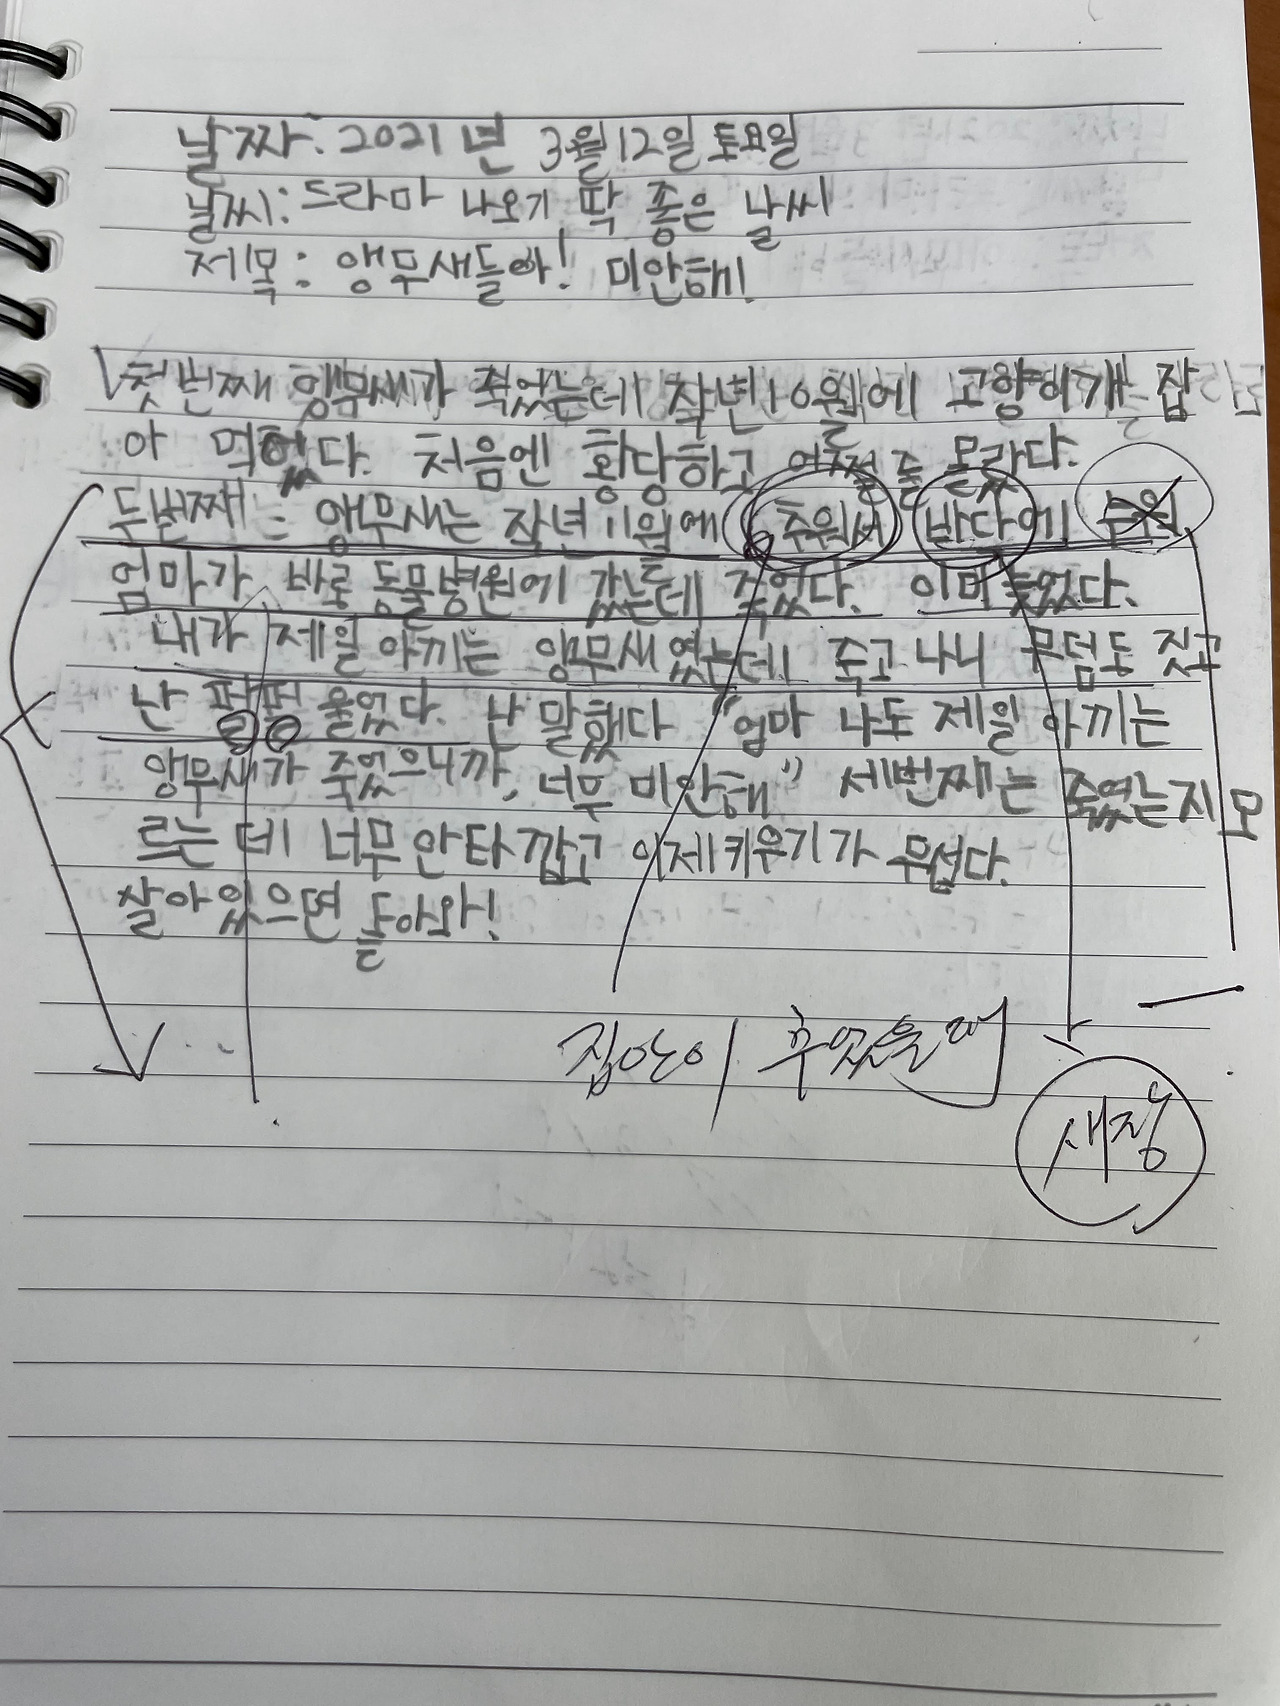 날짜. 2021년 3월 12일 토요일
날씨: 드라마 나오기 딱 좋은 날씨
제목: 앵무새들아! 미안해!
첫번째 앵무새가 죽었는데 작년 10월에 고양이가 잡
아 먹었다. 처음엔 황당하고 어쩔줄 몰랐다.
두번째는 앵무새는 작년 11월에 추워서 바다에
엄마가 바로 동물병원에 갔는데 죽었다. 이미 늦었다.
내가 제일 아끼는 앵무새였는데 죽고나니 무덤도 짓고
난 펑펑 울었다. 난 말했다 "엄마 나도 제일 아끼는
앵무새가 죽었으니까, 너무 미안해" 세번째는 죽었는지 모
르는데 너무 안타깝고 이제 키우기가 무섭다.
살아있으면 돌아와!
집안이 추웠을때
새장